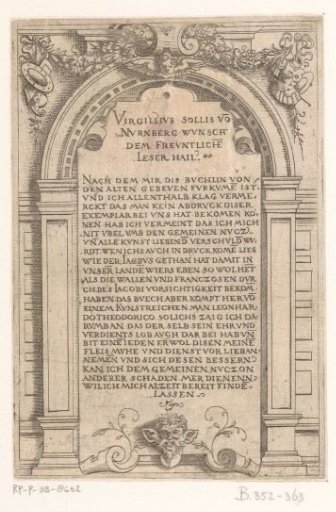 VIRGILLIVS SOLLIS VŌ
NVRNBERG WVNSCH
DEM FREVNTLICHĒ
LESER HAIL
NACH DEM MIR DIS BUCHLIN VON
DEN ALTEN GEBEVEN FVRKVME IST
VND ICH ALLENTHALB KLAG VERME,
RCKT DAS MAN KEIN ABDRVCK DISER
EXEMPLAR BEI VNS HAT BEKOMEN KŌ
NEN HAB ICH VERMEINT DAS ICH MICH
NIT VBEL VMB DEN GEMEINEN NVCZ
VN ALLE KVNST LIEBEND VERSCHVLD WV
RDT WEN ICHS AVCH IN DRVCK KOME LIES
WIE DER IACOBVS GETHAN HAT DAMIT IN
VNSER LANDE WIERS EBEN SO WOL HET
ALS DIE WALLEN VND FRANCZOSEN DVR
CH DES IACOBI VORSICHTIGKEIT BEKOM
HABEN DAS BVECH ABER KOMPT HER VŌ
EINEM KVNSTREICHEN MAN LEONHAR
DO THEODORICO SOLICHS ZAIG ICH DA
RVMB AN DAS DER SELB SEIN EHR VND
VERDIENTS LOB AVCH DAR BEI HAB VN
BIT EINE IEDEN ER WOL DISEN MEINE
FLEIS MVHE VND DIENST VOR LIEB AN
NEMEN VND SICH DESEN BESSERN
KAN ICH DEM GEMEINEN NVCZ ON
ANDERER SCHADEN MER DIENEN
WILICH MICH ALZEIT BEREIT FINDE
LASSEN
RP-P-OB-
B.352-363